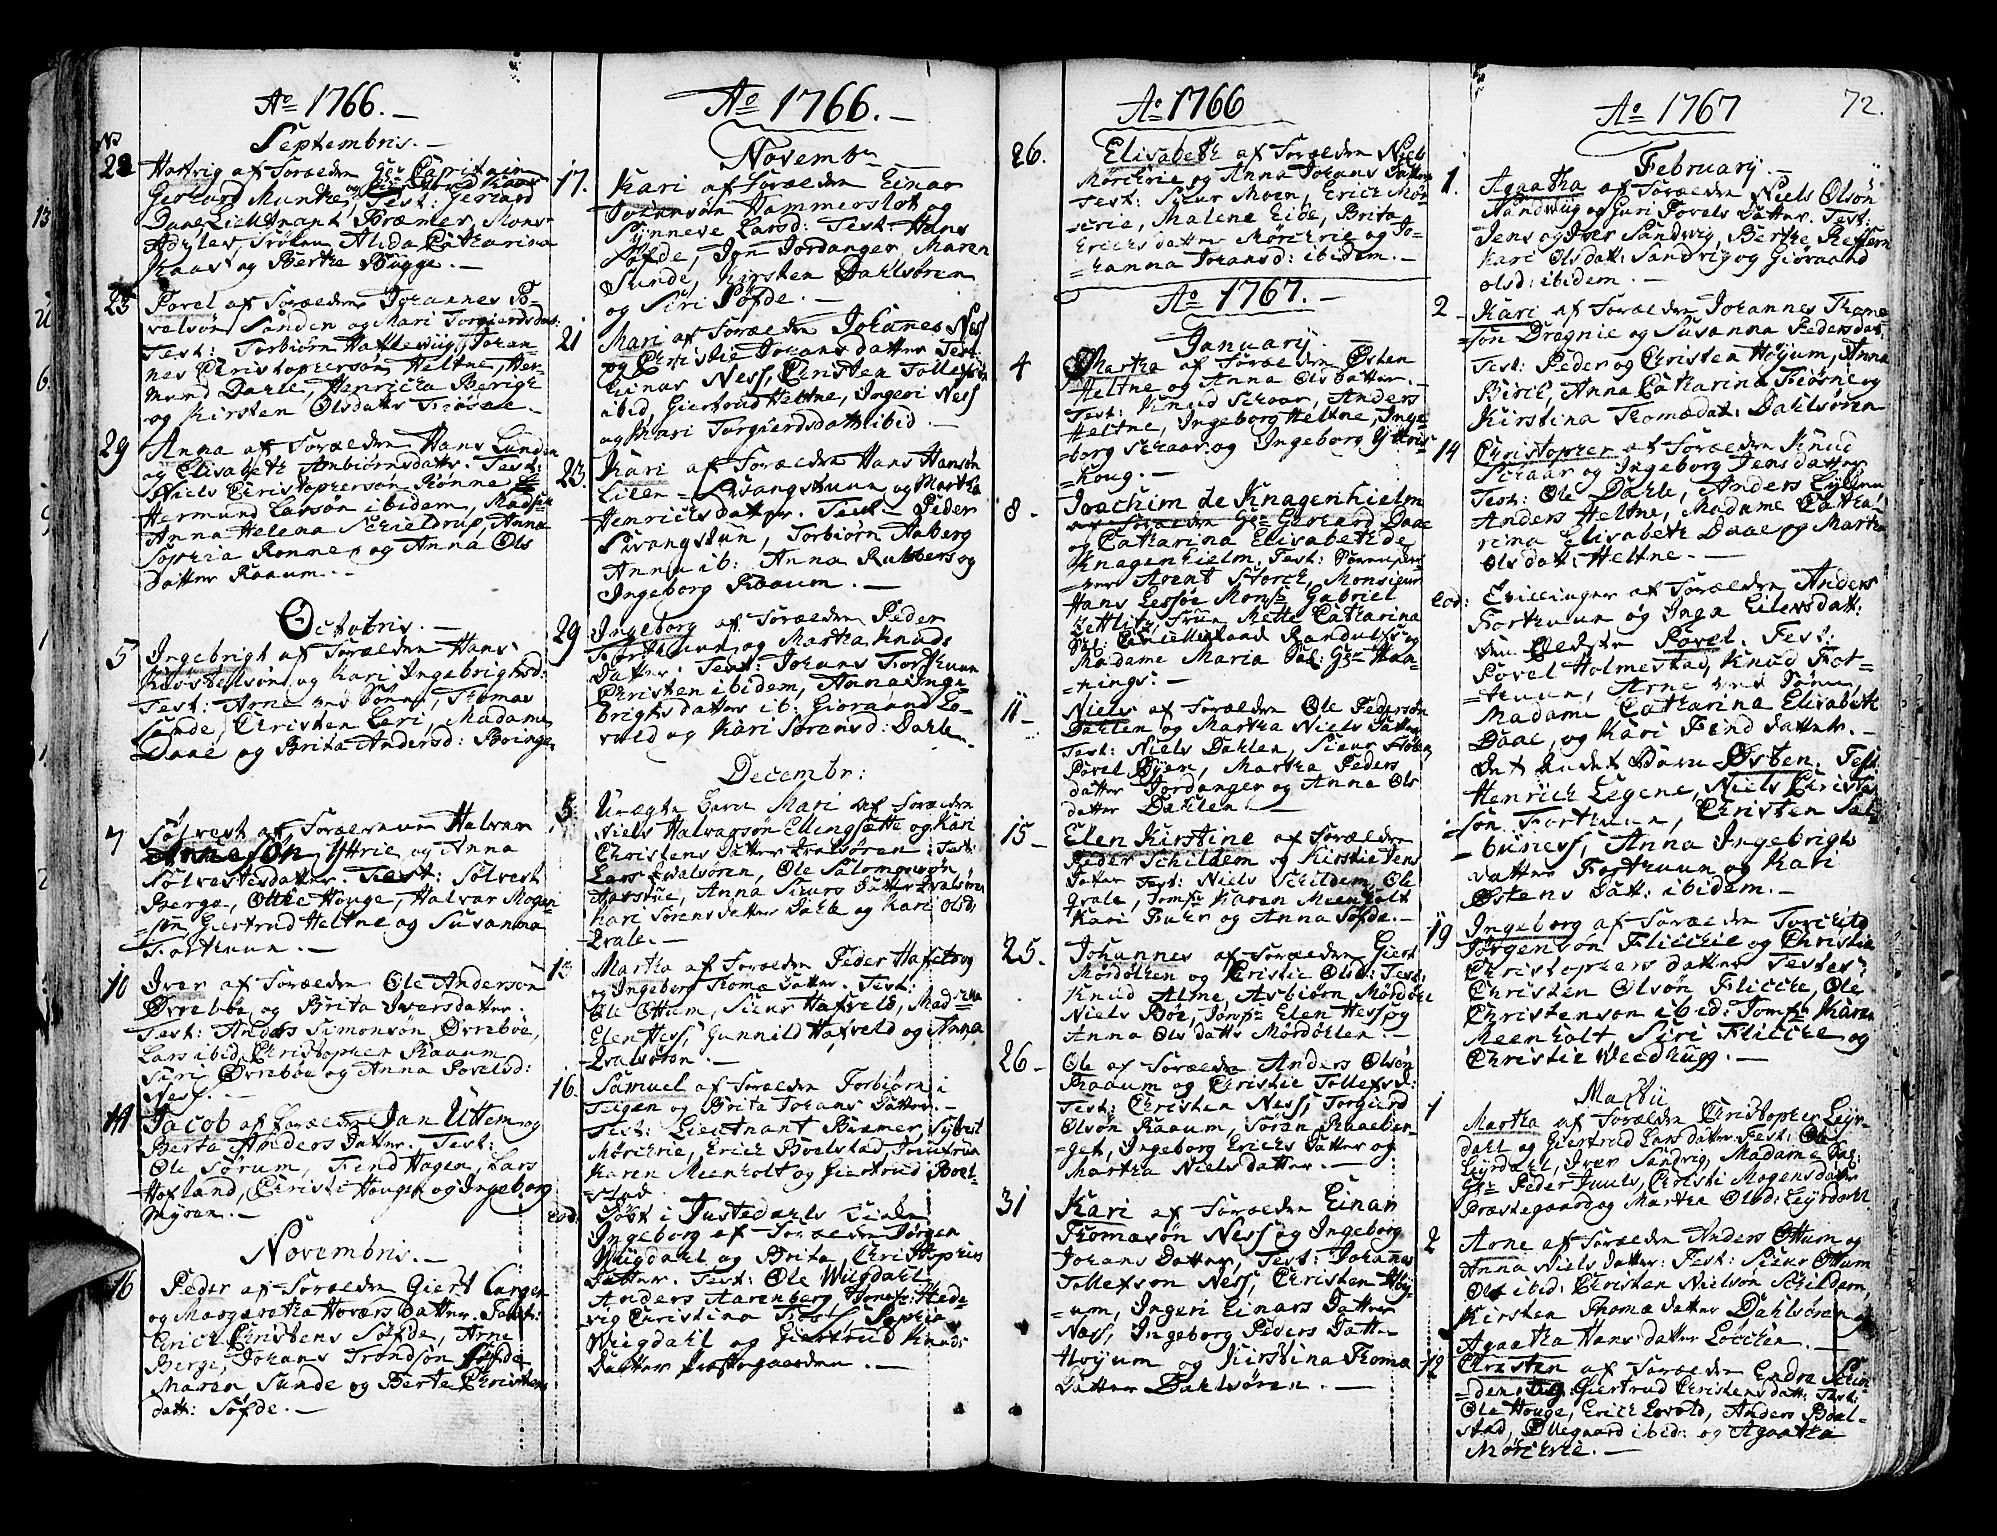 Ao 1766.
Septembris.
22 Hartvig af Foræld: Hr Capitain
Gerhard Munthe og
Daae, Lieutnant Bræmer, Mons:
Alida Catharina
Kaas og Berthe Bügge.
23 Povel af Forælden Johannes Po-
velsön Sanden og Mari Torgiersdat:
Test: Torbiörn Johan-
nes Christophersön Heltne, Her-
mund Dahle, Henricha Berige
og Kirsten Olsdatt:
29 Anna af Forælden Hans Lunden
og Elisabeth Ambiörnsdatt. Test:
Niels Christophersön Rönne
Hermund Larsön ibidem,
Anna Helena Schieldrup, Anna
Sophia Rönne, og Anna Ols
Datter Raaum.
Octobris.
5 Ingebrigt af Forælden Hans
og Kari Ingebrigtsd:
Test: Arne Thomas
Sande, Christen Madame
Daae og Brita Andersd:
7 Sölvest af Forælderne Halvar
Arnesön, Yttrie og Anna
Sölvestesdatter. Test: Sölvest
Berge, Otthe Houge, Halvar Mogen-
sön Giertrud Heltne og Susanna
Forthuun.
10 Iver af Forælden Ole Anderson
Örreböe og Brita Iversdatter.
Test: Anders Simonsön Örreböe,
Lars ibid, Christopher Raaum
Siri Örreböe og Anna Povelsd:
Ness.
14 Jacob af Forælden Jan Uttem og
Berta Anders Datter. Test:
Ole Sorum, Find Hagen, Lars
Hofland, Christi Hougen og Ingeborg
Myren.
Novembris.
16 Peder af Forælden Giert
og Margaretha Havars Datter. Test:
Erich Christens Söfde, Arne
Berge, Johans Trondsön Söfde
Maren Sunde og Berte Christens
datt: Söfde.
Ao 1766.
Novembr
17. Kari af Forælden Einar
Johansön Hammerslot og
Synneve Larsd: Test: Hans
Söfde, Jon Jordanger, Maren
Sunde, Kirsten Dahlsören
og Siri Söfde.
21 Mari af Forælden Johanes Ness
og Christie Johans datter Test:
Einar Ness, Christen Tollefsön
ibid, Giertrud Heltne, Ingeri Ness
og Mari Torgiersdatt ibid.
23. Kari af Forælden Hans Hansön
Lilen Svangstuun og Martha
Henrichsdatter. Test: Peder
Svangstun, Torbiörn Aaberg
Anna ib: Anna Rubbers og
Ingeborg Raaum.
29 Ingeborg af Forælden Peder
Forthuun og Martha Knuds
Datter Test: Johans Forthuun
Christen ibidem, Anna Inge-
brigts datter ib: Gioraand Lo-
vold og Kari Sorensd: Dahle
Decembr:
5. Uægte Barn Mari af Forælden
Niels Halvarsön Ellingsætte og Kari
Christens Datter Qvalsören. Test:
Lars Qvalsören, Ole Salomonsön
Aarstue, Anna Siurs Datter Qvalsören
Kari Sörens datter Dahle og Kari Olsd:
Qvale.
13 Martha af Forælden Peder
og Ingeborg Thoma Datter. Test:
Ole Ottum, Siur Hafveld,
Elen Hess, Gunnild Hafveld og Anna
Qvalsören.
16. Samuel af Forælden Torbiörn
Teigen og Brita Johans Datter.
Test: Lieutnant Bræmer, Sylvest
Mörchrie, Erich Boelstad, Jomfru
Karen Meenholt og Giertrud Boel-
stad
eod: Döbt i Justedahls Kirke
Ingeborg af Forælden Jörgen
Wiigdahl og Brita Christophers
Datter. Test: Ole Wiigdahl
Anders Aarenberg, Jomfr: Hede-
vig Christina Foss, Sophia
Wiigdahl og Giertrud Knuds
Datter Prestegaarden.
Ao 1766
26. Elisabeth af Forælden Niels
Mörchrie og Anna Johans Datter
Test: Siur Moen, Erich Mör-
chrie, Malene Eide, Brita
Erichsdatter Mörchrie og Jo-
hanna Johansd: ibidem.
Ao 1767.
January.
4 Martha af Forælden Östen
Heltne og Anna Olsdatter.
Test: Knud Schaar, Anders
Heltne, Ingeborg Heltne, Inge-
borg Schaar og Ingeborg Yttris
Houg.
8 Joachim de Knagenhielm
af Forælden Hr Gerhard Daae
og Catharina Elisabeth de
Knagenhielm. Test:
Storch, Monsieur
Hans Lessöe Monsr Gabriel
Mette Catharina
Randulf og
Madame Maria Sal: Hr Han-
nings:
11 Niels af Forælden Ole Pederson
Dahlen og Martha Niels Datter
Test: Niels Dahlen, Siur
Povel Martha Peders
datter Jordanger og Anna Ols
datter Dahlen.
15 Elen Kirstine af Forælden
Peder Schildem og Kirstie Jens
Datter Test: Niels Schildem, Ole
Qvale, Jomfr Karen Meenholt
Kari Fuhr og Anna Söfde.
25. Johannes af Forælden Giert
Mördölken og Christie Olsd: Test:
Knud Alme, Asbiörn Mördölen
Niels Böe, Jomfr Elen Hess og
Anna Ols datter Mördölen.
26 Ole af Forælden Anders Olsön
Raaum og Christie Tollefsd:
Test: Christen Ness, Torgierd
Olsön Raaum, Sören Knaaber-
get, Ingeborg Erichs Datter og
Martha Nielsdatter.
31 Kari af Forælden Einar
Thomasön Ness og Ingeborg
Johans Datter, Test: Johanes
Tollefsön Ness, Christen Höy-
um, Ingeri Einars Datter
Ness, Ingeborg Peders Datter
Höyum og Kirstina Thoma
Datter Dahlsören.
Ao 1767
72.
February.
1. Agaatha af Forælden Niels Olsön
Sandwiig og Guri Povels Datter. Test:
Jens og Iver Sandvig, Berthe
Kari Olsdatt: Sandvig og Gioraand
olsd: ibidem.
2 Kari af Forælden Johannes Thoma
sön Drægnie og Susanna Pedersdat
Test: Peder og Christen Höyum, Anna
Birch, Anna Catharina Fiörne og
Kirstina Thomædat: Dahlsören
14 Christopher af Forælden Knud
Schaar og Ingeborg Jensdatter
Test: Ole Dahle, Anders
Anders Heltne, Madame Catha-
rina Elisabeth Daae og Martha
Olsdatt: Heltne.
eod: Tvillinger af Forælden Anders
Forthuun og Inga Eilersdatt:
den Eldste Povel. Test:
Povel Holmestad, Knud For-
thuun, Arne
Madame Catharina Elisabeth
Daae, og Kari Find datter.
Det andet Barn Östen. Test:
Henrich Eegene, Niels Christen
sön Forthuun, Christen Sal-
biiness, Anna Ingebrigts
datter Forthuun og Kari
Östens Datt: ibidem.
19 Ingeborg af Forælden Torchild
Jörgensön Flicchie og Christie
Christophers datter Testes:
Christen Olsön Flicche, Ole
Christenson ibid: Jomfr Karen
Meenholt Siri Fliccie og
Christie Weedhugg.
Martii
1 Martha af Forælden Christopher Leyr-
dahl og Giertrud Lars datter. Test: Ole
Leyrdahl, Iver Sandvig, Madame Sal:
Hr Peder Juuls, Christi Mogensdatter
Præstegaard og Martha Olsd: Leyrdahl.
2 Arne af Forælden Anders Ottum og
Anna Niels datter. Test: Siur Ottum
Ole ibid: Christen Nielsön Schildem,
Kirsten Thomæ datter Dahlsören og
Agaatha Hans datter Löcchen.
19 Christen af Forælden Endre
Giertrud Christensdatt: Test:
Ole Houge, Erich Lovold, Anders Boel-
stad, Ollegaard ibid: og Agaatha
Mörchrie.